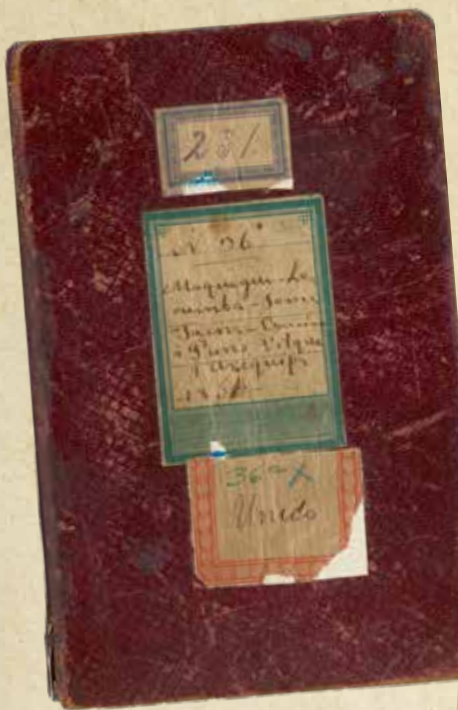 231.
N. 36ª
Moquegua - Lo
cumba - Sama
Tacna -
á Puno Vilque
y Arequipa
36ª X
Unido